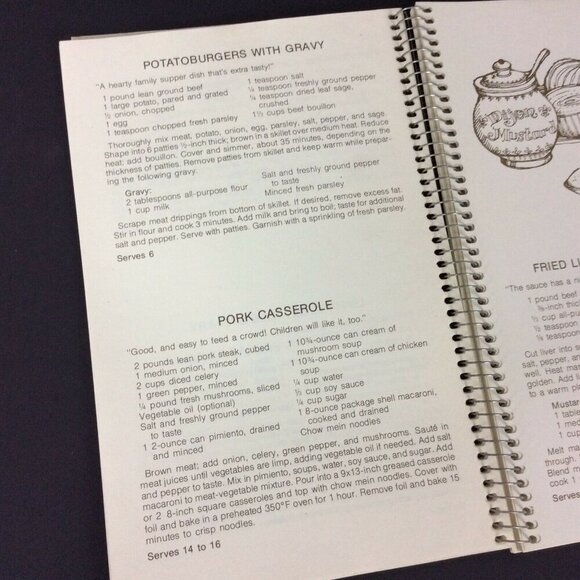 POTATOBURGERS WITH GRAVY
"A hearty family supper dish that's extra tasty!"
1 pound lean ground beef
1 large potato, pared and grated
½ onion, chopped
1 egg
1 teaspoon chopped fresh parsley
1 teaspoon salt
¼ teaspoon freshly ground pepper
¼ teaspoon dried leaf sage,
crushed
1½ cups beef bouillon
Thoroughly mix meat, potato, onion, egg, parsley, salt, pepper, and sage.
Shape into 6 patties ½-inch thick; brown in a skillet over medium heat. Reduce
heat; add bouillon. Cover and simmer, about 35 minutes, depending on the
thickness of patties. Remove patties from skillet and keep warm while prepar-
ing the following gravy.
Gravy:
2 tablespoons all-purpose flour
1 cup milk
Salt and freshly ground pepper
to taste
Minced fresh parsley
Scrape meat drippings from bottom of skillet. If desired, remove excess fat.
Stir in flour and cook 3 minutes. Add milk and bring to boil; taste for additional
salt and pepper. Serve with patties. Garnish with a sprinkling of fresh parsley.
Serves 6
PORK CASSEROLE
"Good, and easy to feed a crowd! Children will like it, too."
2 pounds lean pork steak, cubed
1 medium onion, minced
2 cups diced celery
1 green pepper, minced
¼ pound fresh mushrooms, sliced
Vegetable oil (optional)
Salt and freshly ground pepper
to taste
1 2-ounce can pimiento, drained
and minced
1 10¾-ounce can cream of
mushroom soup
1 10¾-ounce can cream of chicken
soup
¼ cup water
½ cup soy sauce
¼ cup sugar
1 8-ounce package shell macaroni,
cooked and drained
Chow mein noodles
Brown meat; add onion, celery, green pepper, and mushrooms. Sauté in
meat juices until vegetables are limp, adding vegetable oil if needed. Add salt
and pepper to taste. Mix in pimiento, soups, water, soy sauce, and sugar. Add
macaroni to meat-vegetable mixture. Pour into a 9x13-inch greased casserole
or 2 8-inch square casseroles and top with chow mein noodles. Cover with
foil and bake in a preheated 350°F oven for 1 hour. Remove foil and bake 15
minutes to crisp noodles.
Serves 14 to 16
Dijon
Mustard
FRIED LI
"The sauce has a
1 pound beef
⅜-inch thi
½ cup all-pu
½ teaspoon
⅛ teaspoon
Cut liver into s
salt, pepper, a
well. Heat ma
golden. Add l
to a warm p
Mustar
1 tabl
1 med
1 cu
Melt ma
through.
Blend m
cook 1
Serves